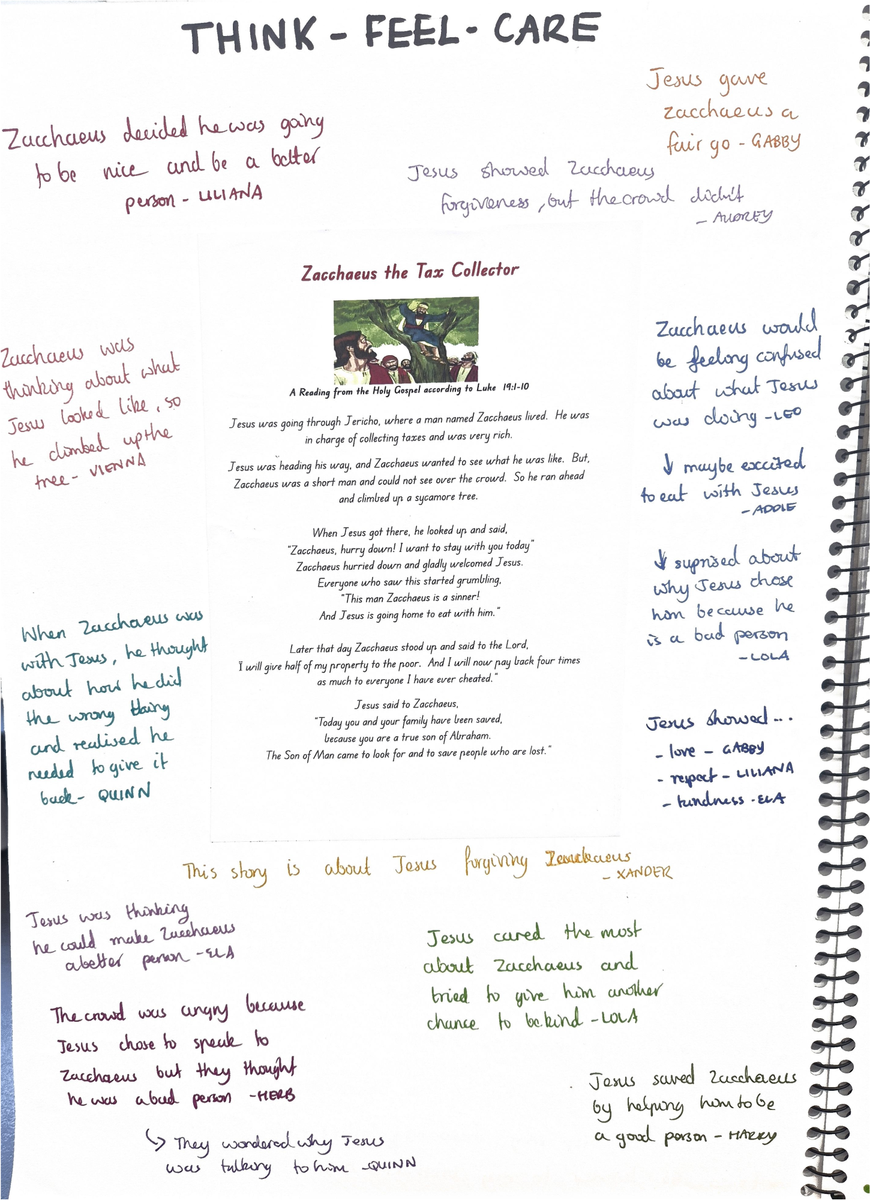 THINK - FEEL - CARE
Jesus gave
zacchaeus a
fair go - GABBY
Zacchaeus decided he was going
to be nice and be a better
person - LILIANA
Jesus showed Zacchaeus
forgiveness, but the crowd didn't
- AUDREY
Zacchaeus the Tax Collector
A Reading from the Holy Gospel according to Luke 19:1-10
Jesus was going through Jericho, where a man named Zacchaeus lived. He was
in charge of collecting taxes and was very rich.
Jesus was heading his way, and Zacchaeus wanted to see what he was like. But,
Zacchaeus was a short man and could not see over the crowd. So he ran ahead
and climbed up a sycamore tree.
When Jesus got there, he looked up and said,
"Zacchaeus, hurry down! I want to stay with you today"
Zacchaeus hurried down and gladly welcomed Jesus.
Everyone who saw this started grumbling,
"This man Zacchaeus is a sinner!
And Jesus is going home to eat with him."
Later that day Zacchaeus stood up and said to the Lord,
"I will give half of my property to the poor. And I will now pay back four times
as much to everyone I have ever cheated."
Jesus said to Zacchaeus,
"Today you and your family have been saved,
because you are a true son of Abraham.
The Son of Man came to look for and to save people who are lost."
Zacchaeus was
thinking about what
Jesus looked like, so
he climbed up the
tree - VIENNA
When Zacchaeus was
with Jesus, he thought
about how he did
the wrong thing
and realised he
needed to give it
back - QUINN
Zacchaeus would
be feelong confused
about what Jesus
was doing - LEO
↓ maybe excited
to eat with Jesus
- ADDIE
↓ suprised about
why Jesus chose
him because he
is a bad person
- LOLA
Jesus showed...
- love - GABBY
- respect - LILIANA
- kindness - ELA
This story is about Jesus forgiving Zacchaeus
- XANDER
Jesus was thinking
he could make Zacchaeus
a better person - ELA
The crowd was angry because
Jesus chose to speak to
Zacchaeus but they thought
he was a bad person - HERB
↳ They wondered why Jesus
was talking to him - QUINN
Jesus cared the most
about Zacchaeus and
tried to give him another
chance to be kind - LOLA
Jesus saved Zacchaeus
by helping him to be
a good person - HARRY